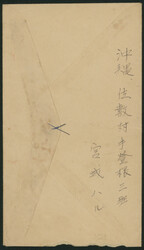 沖縄 佐敷村手登根二班
宮城ハル